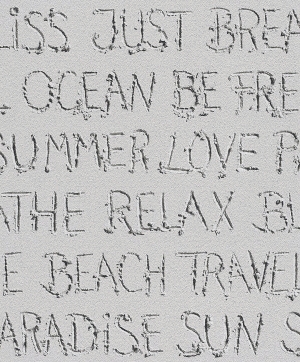 LiSS JUST BREA
L OCEAN BE FRE
SUMMER LOVE R
ATHE RELAX BL
E BEACH TRAVEL
ARADiSE SUN S